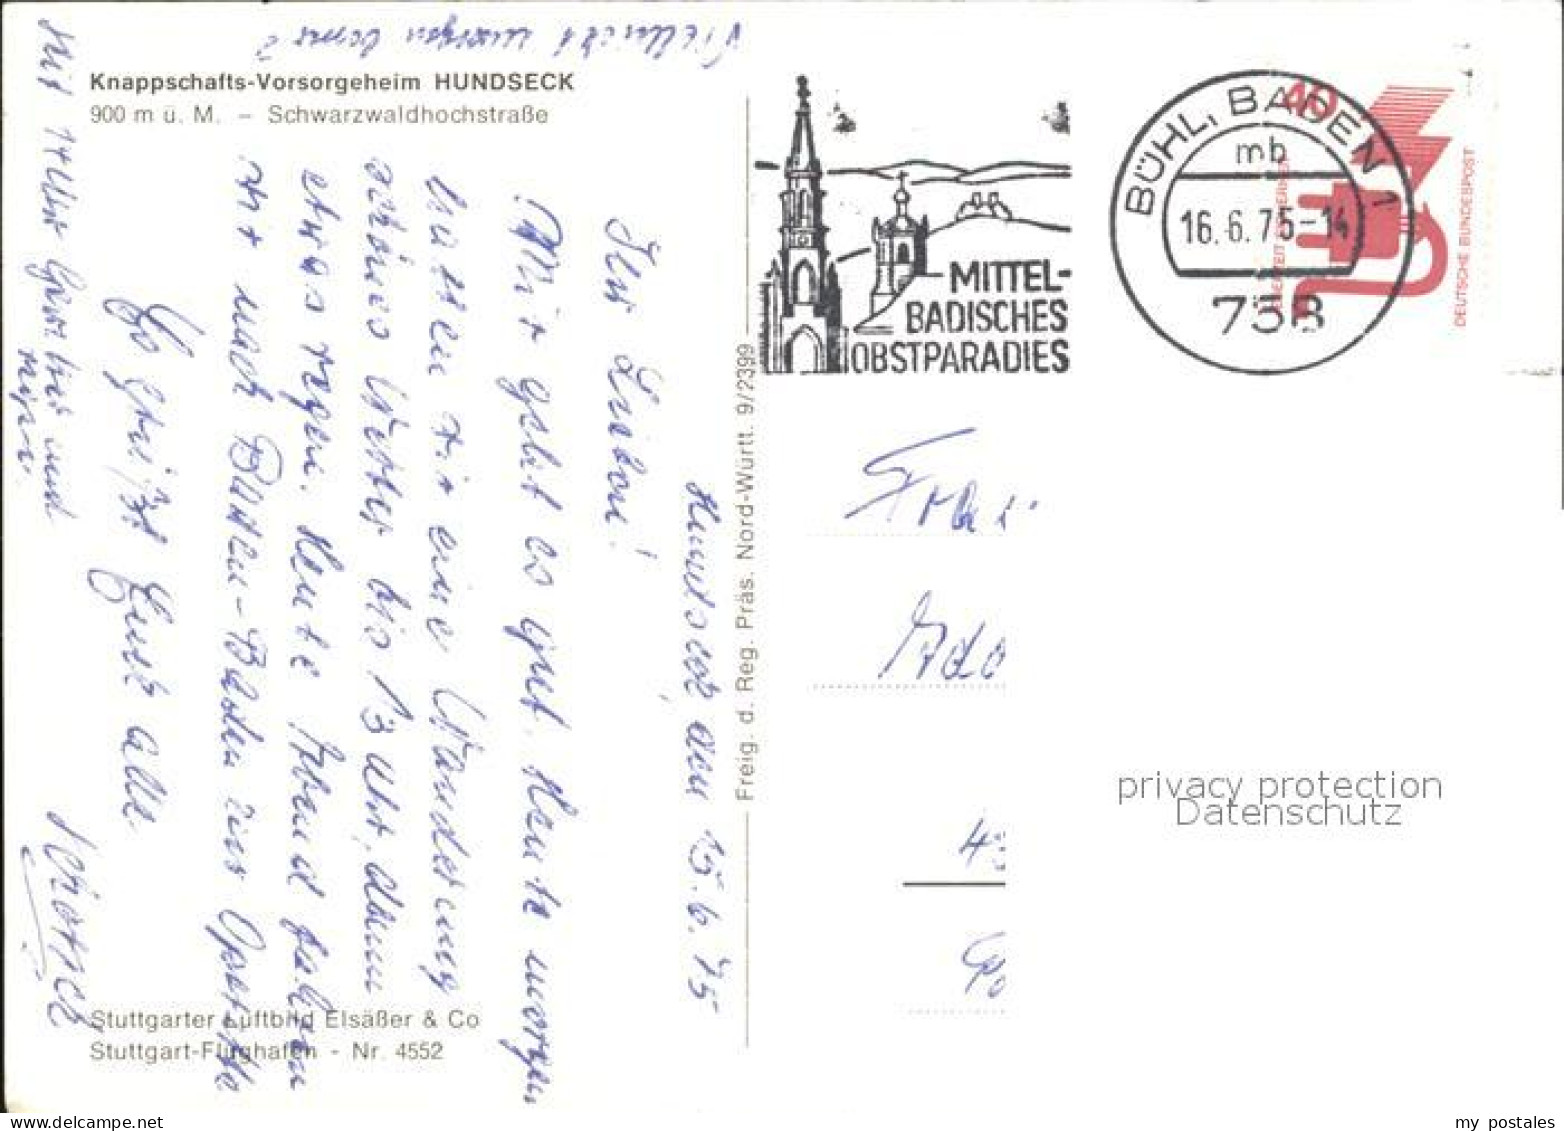 Knappschafts-Vorsorgeheim HUNDSECK
900 m ü. M. – Schwarzwaldhochstraße
Hundseck, den 15.6.75
Ihr Lieben!
Mir geht es gut. Heute morgen
hatten wir eine Wanderung
schönes Wetter bis 13 Uhr, dann
etwas regen. Heute Abend fahren
wir nach Baden-Baden zur Operette
Es grüßt Euch alle
Mit
Vielleicht morgen
Stuttgarter Luftbild Elsäßer & Co
Stuttgart-Flughafen - Nr. 4552
Freig. d. Reg. Präs. Nord-Württ. 9/2399
MITTEL-
BADISCHES
OBSTPARADIES
BÜHL, BADEN 1
mb
16.6.75-14
758
40
DEUTSCHE BUNDESPOST
privacy protection
Datenschutz
my postales